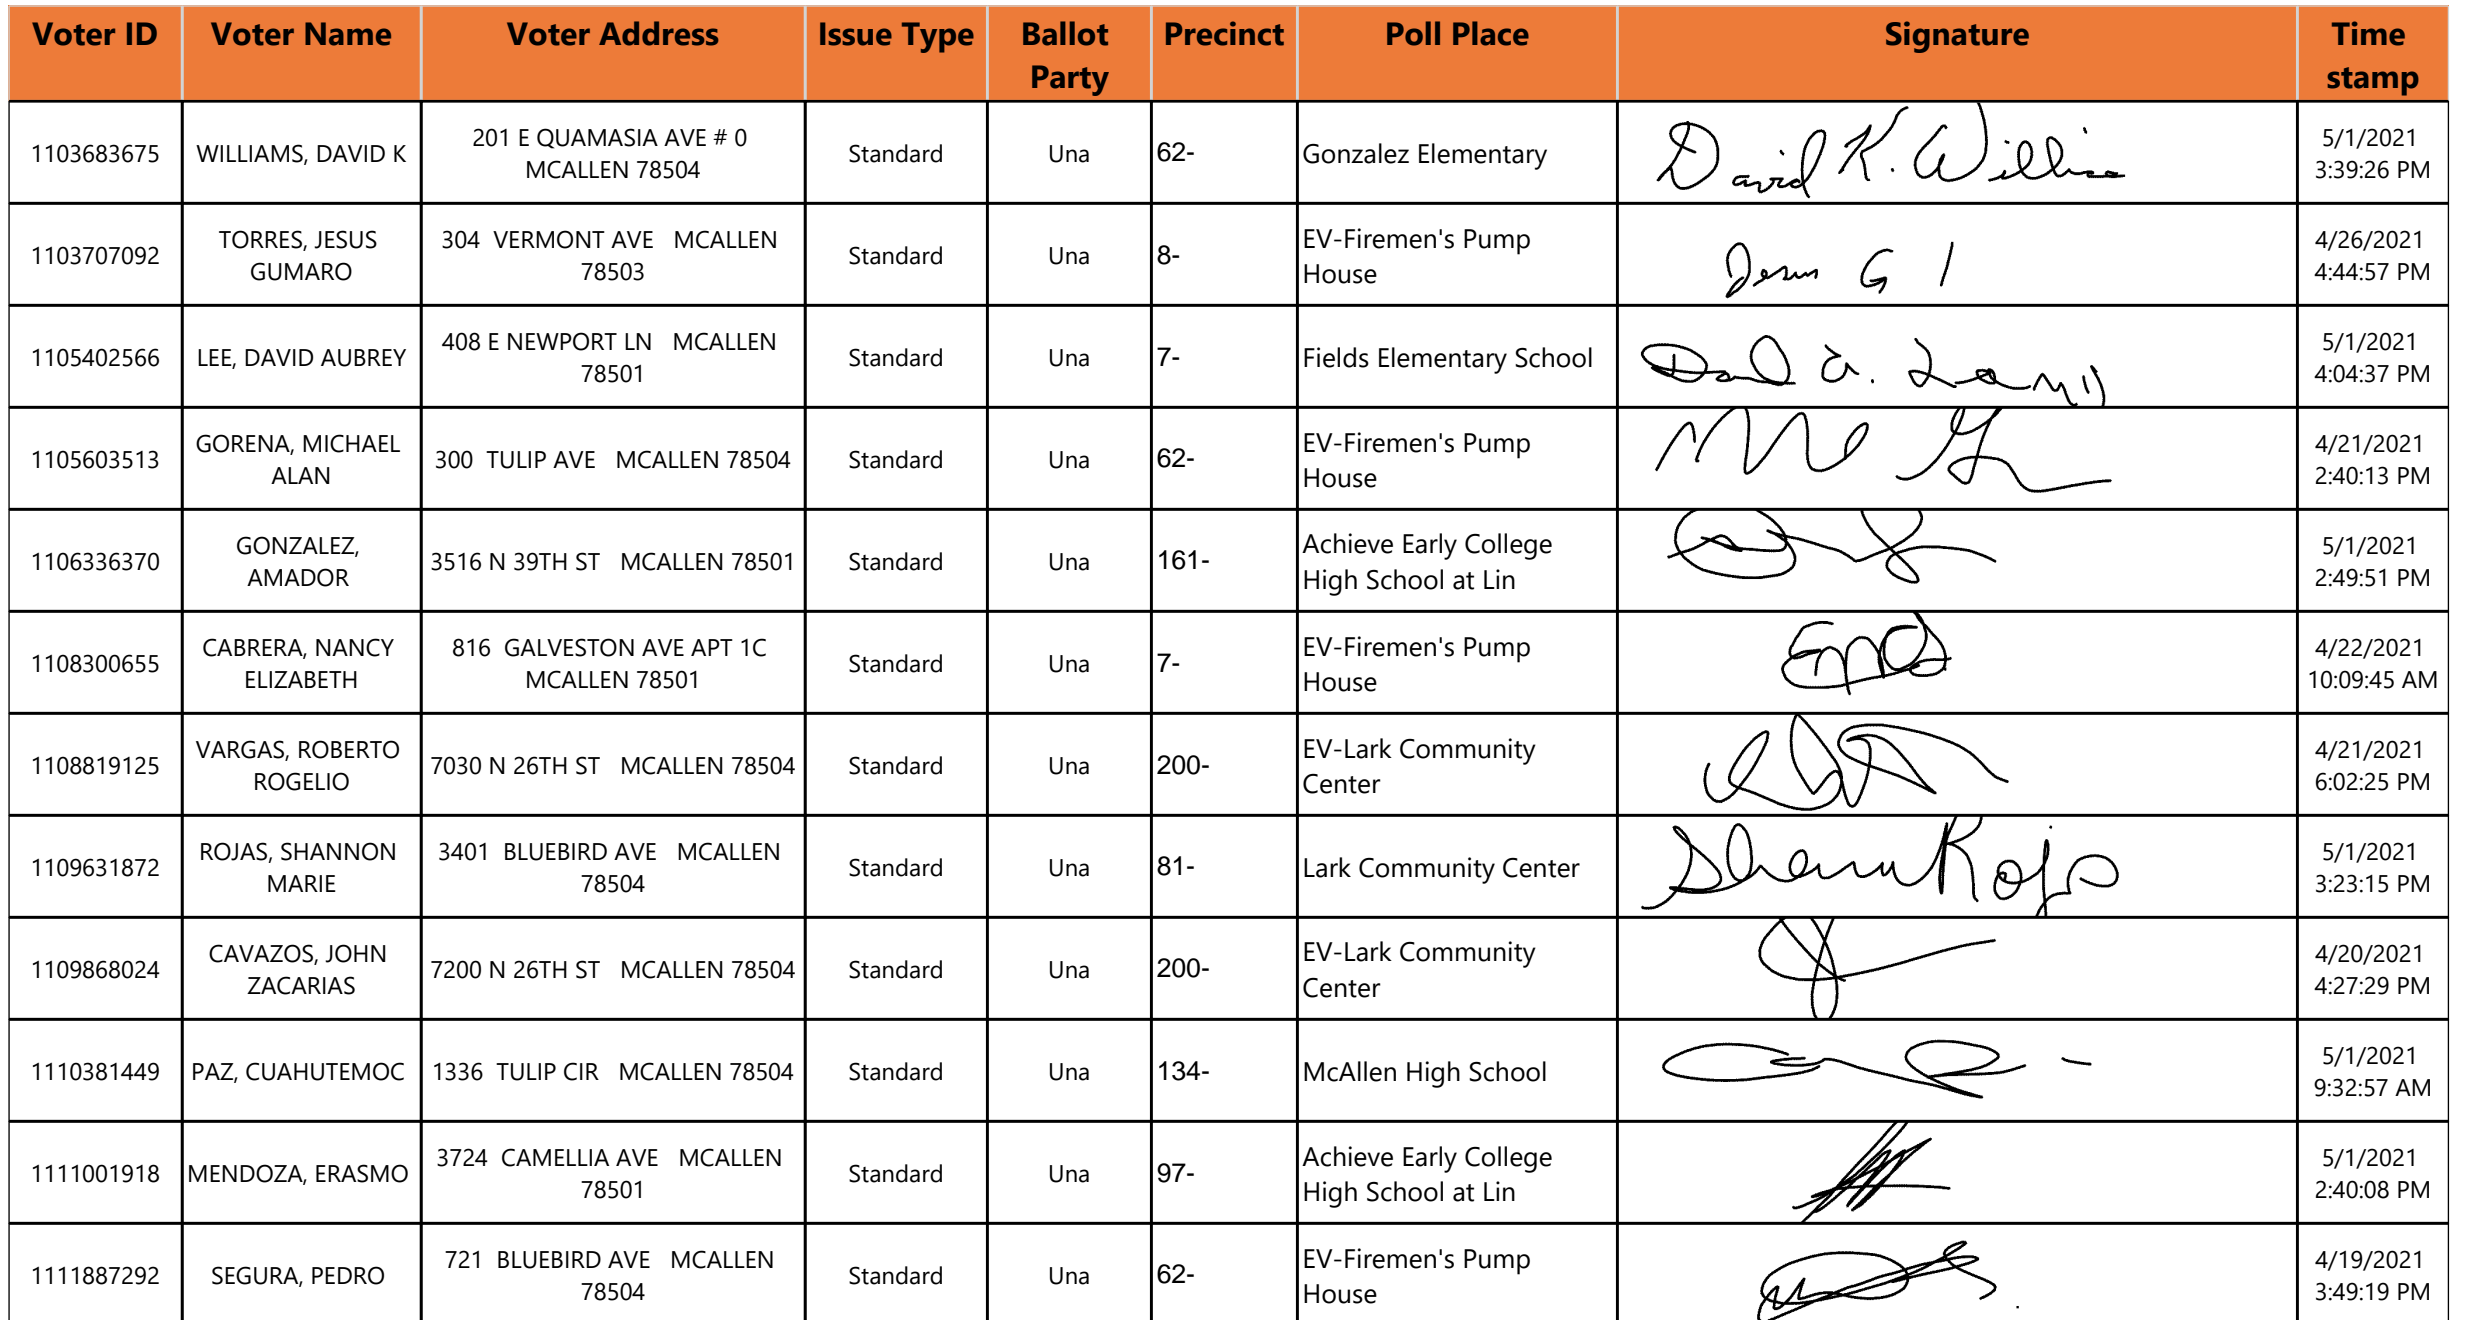 Voter ID Voter Name Voter Address Issue Type Ballot Party Precinct Poll Place Signature Time stamp
1103683675 WILLIAMS, DAVID K 201 E QUAMASIA AVE # 0 MCALLEN 78504 Standard Una 62- Gonzalez Elementary David K. Williams 5/1/2021 3:39:26 PM
1103707092 TORRES, JESUS GUMARO 304 VERMONT AVE MCALLEN 78503 Standard Una 8- EV-Firemen's Pump House Jesus G 4/26/2021 4:44:57 PM
1105402566 LEE, DAVID AUBREY 408 E NEWPORT LN MCALLEN 78501 Standard Una 7- Fields Elementary School 5/1/2021 4:04:37 PM
1105603513 GORENA, MICHAEL ALAN 300 TULIP AVE MCALLEN 78504 Standard Una 62- EV-Firemen's Pump House 4/21/2021 2:40:13 PM
1106336370 GONZALEZ, AMADOR 3516 N 39TH ST MCALLEN 78501 Standard Una 161- Achieve Early College High School at Lin 5/1/2021 2:49:51 PM
1108300655 CABRERA, NANCY ELIZABETH 816 GALVESTON AVE APT 1C MCALLEN 78501 Standard Una 7- EV-Firemen's Pump House 4/22/2021 10:09:45 AM
1108819125 VARGAS, ROBERTO ROGELIO 7030 N 26TH ST MCALLEN 78504 Standard Una 200- EV-Lark Community Center 4/21/2021 6:02:25 PM
1109631872 ROJAS, SHANNON MARIE 3401 BLUEBIRD AVE MCALLEN 78504 Standard Una 81- Lark Community Center 5/1/2021 3:23:15 PM
1109868024 CAVAZOS, JOHN ZACARIAS 7200 N 26TH ST MCALLEN 78504 Standard Una 200- EV-Lark Community Center 4/20/2021 4:27:29 PM
1110381449 PAZ, CUAHUTEMOC 1336 TULIP CIR MCALLEN 78504 Standard Una 134- McAllen High School 5/1/2021 9:32:57 AM
1111001918 MENDOZA, ERASMO 3724 CAMELLIA AVE MCALLEN 78501 Standard Una 97- Achieve Early College High School at Lin 5/1/2021 2:40:08 PM
1111887292 SEGURA, PEDRO 721 BLUEBIRD AVE MCALLEN 78504 Standard Una 62- EV-Firemen's Pump House 4/19/2021 3:49:19 PM